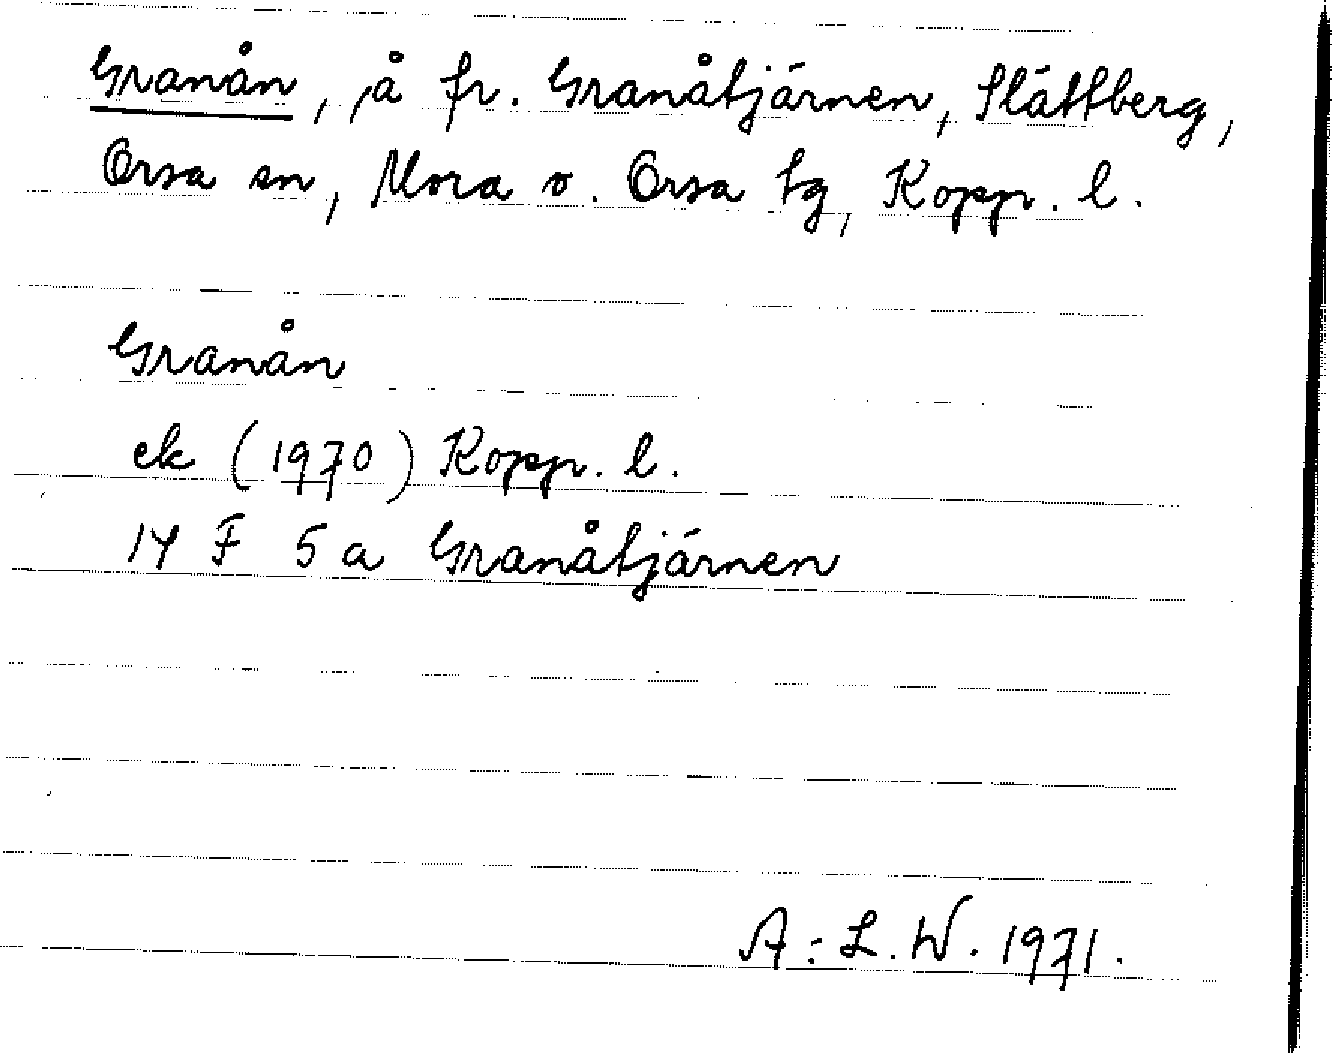 Granån, å fr. Granåtjärnen, Slättberg,
Orsa sn, Mora o. Orsa tg, Kopp. l.
Granån
ek (1970) Kopp. l.
14 F 5 a Granåtjärnen
A.-L. W. 1971.